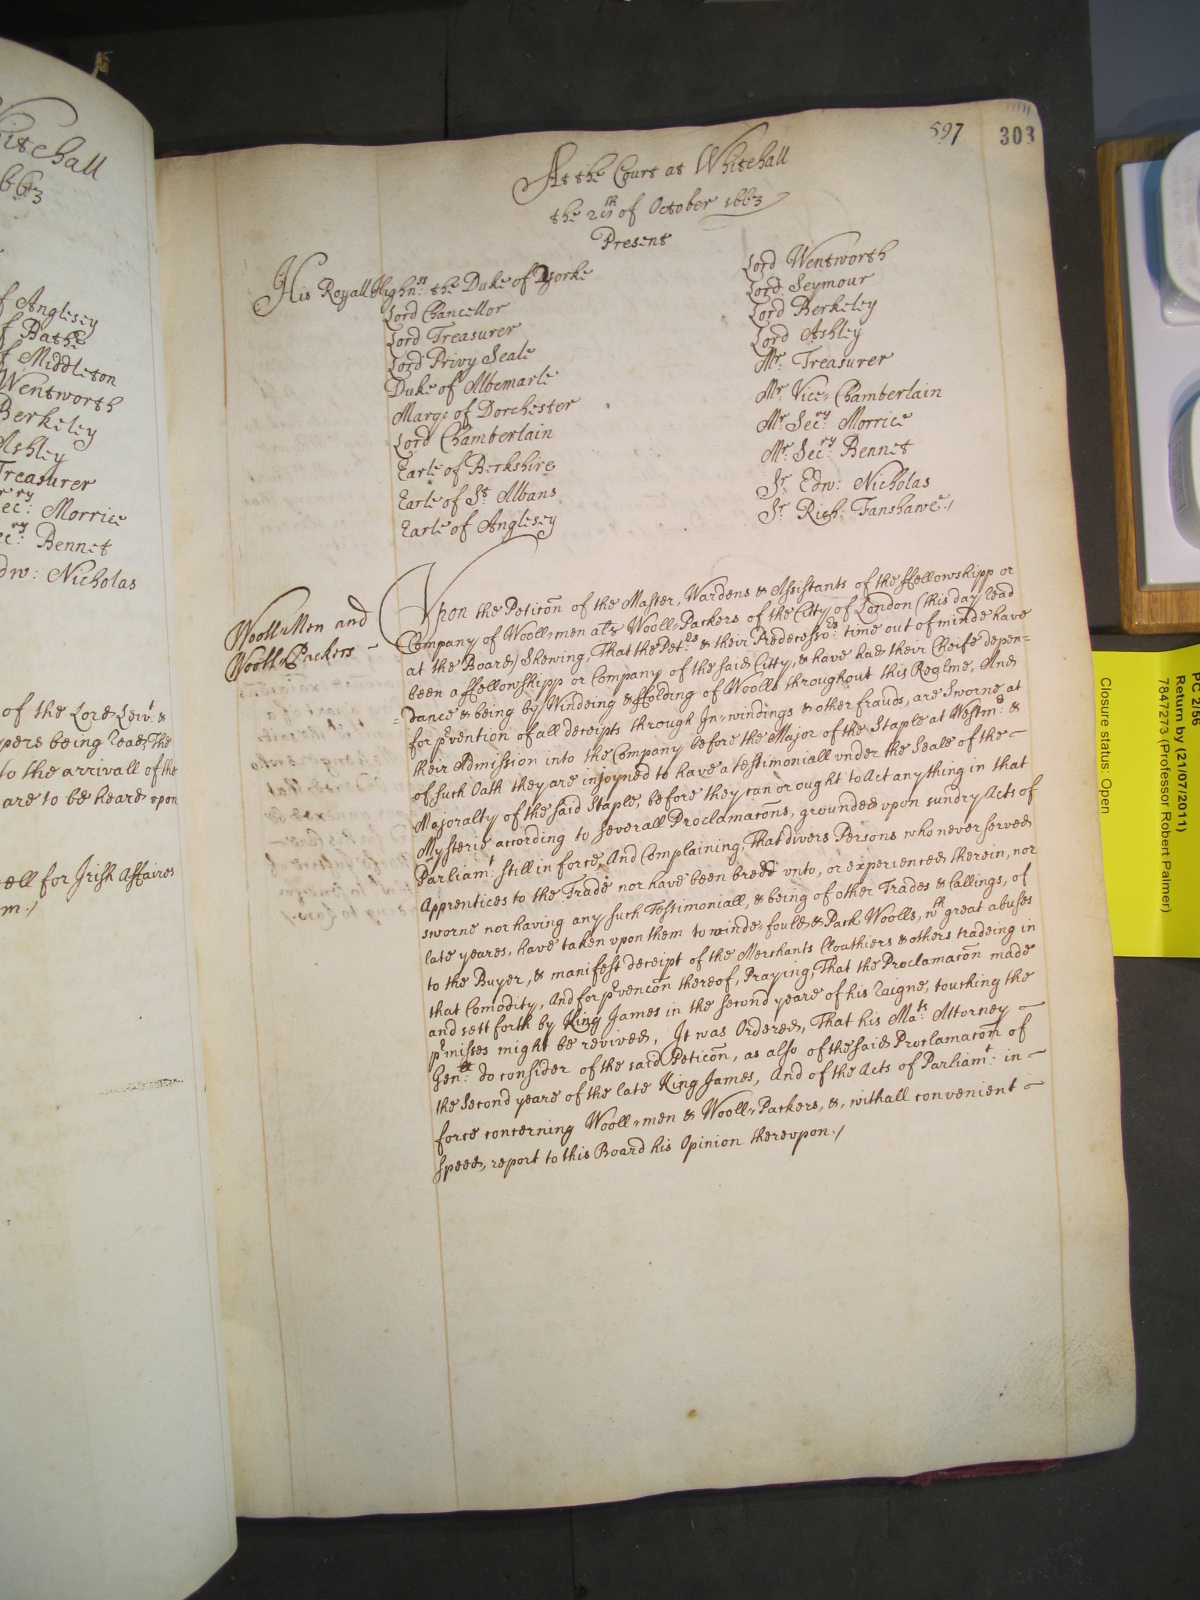 Whitehall
663
of Anglesey
of Bathe
of Middleton
Wentworth
Berkeley
Ashley
Treasurer
ec: ry Morrice
ec: ry Bennet
Edw: Nicholas
of the Lord Leivt: &
pers being read, The
to the arrivall of the
are to be heard upon
ell for Irish Affaires
m./
597 303
At the Court at Whitehall
the 21th of October 1663
Present
His Royall Highnss: the Duke of Yorke
Lord Chancellor
Lord Treasurer
Lord Privy Seale
Duke of Albemarle
Marq: of Dorchester
Lord Chamberlain
Earle of Berkshire
Earle of St: Albans
Earle of Anglesey
Lord Wentworth
Lord Seymour
Lord Berkeley
Lord Ashley
Mr: Treasurer
Mr: Vice-Chamberlain
Mr: Secry: Morrice
Mr: Secry: Bennet
Sr: Edw: Nicholas
Sr: Rich: Fanshawe./
Wooll-Men and
Wooll-Packers -
Vpon the Peticõn of the Master, Wardens & Assistants of the ffellowshipp or
Company of Wooll-men als Wooll-Packers of the City of London (this day read
at the Board) Shewing, That the Petrs & their Predecessors time out of minde have
been a ffellowshipp or Company of the said Citty, & have had their Cheife depen=
=dance & being by Winding & ffolding of Woolls throughout this Realme, And
for prvention of all deceipts through In-windings & other frauds, are Sworne at
their Admission into the Company before the Major of the Staple at Westmr: &
of such Oath they are injoyned to have a testimoniall vnder the Seale of the -
Majoralty of the said Staple, before they can or ought to Act any thing in that
Mysterie according to severall Proclamacõns, grounded vpon sundry Acts of
Parliamt: still in force, And Complaining, That divers Persons who never served
Apprentices to the Trade nor have been breed vnto, or experienced therein, nor
sworne nor having any such Testimoniall, & being of other Trades & Callings, of
late yeares, have taken vpon them to winde, fould & Pack Woolls, wth great abuses
to the Buyer, & manifest deceipt of the Merchants Cloathiers & others tradeing in
that Comodity, And for prvencõn thereof, Praying, That the Proclamacõn made
and sett forth by King James in the second yeare of his raigne, touching the
prmisses might be revived, It was Ordered, That his Mats: Attorney -
Genll: do consider of the said Peticõn, as also of the said Proclamacõn of
the Second yeare of the late King James, And of the Acts of Parliamt: in -
force concerning Wooll-men & Wooll-Packers, &, withall convenient -
speed, report to this Board his Opinion therevpon./
PC 2/56
Return by (21/07/2011)
7847273 (Professor Robert Palmer)
Closure status: Open